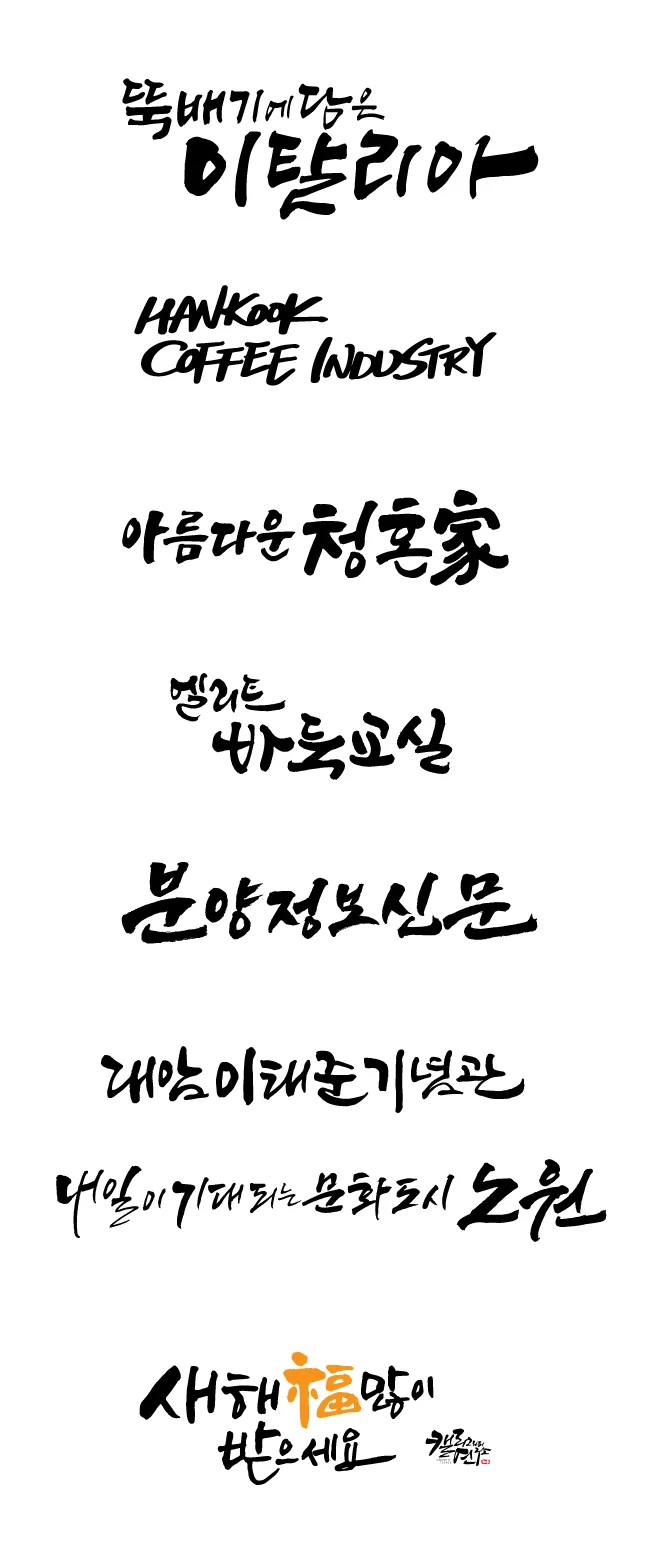 뚝배기에 담은
이탈리아
HANKOOK
COFFEE INDUSTRY
아름다운 청혼家
엘리트
바둑교실
분양정보신문
대암 이태준 기념관
내일이 기대되는 문화도시 노원
새해 福 많이
받으세요
캘리그라피
연구소